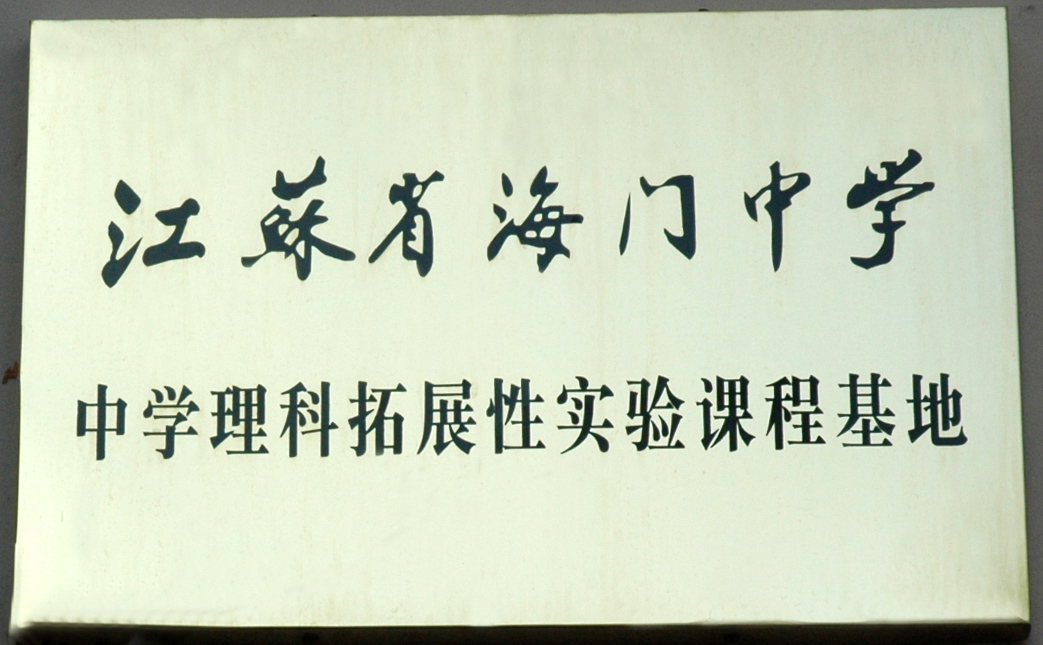 江蘇省海门中学
中学理科拓展性实验课程基地